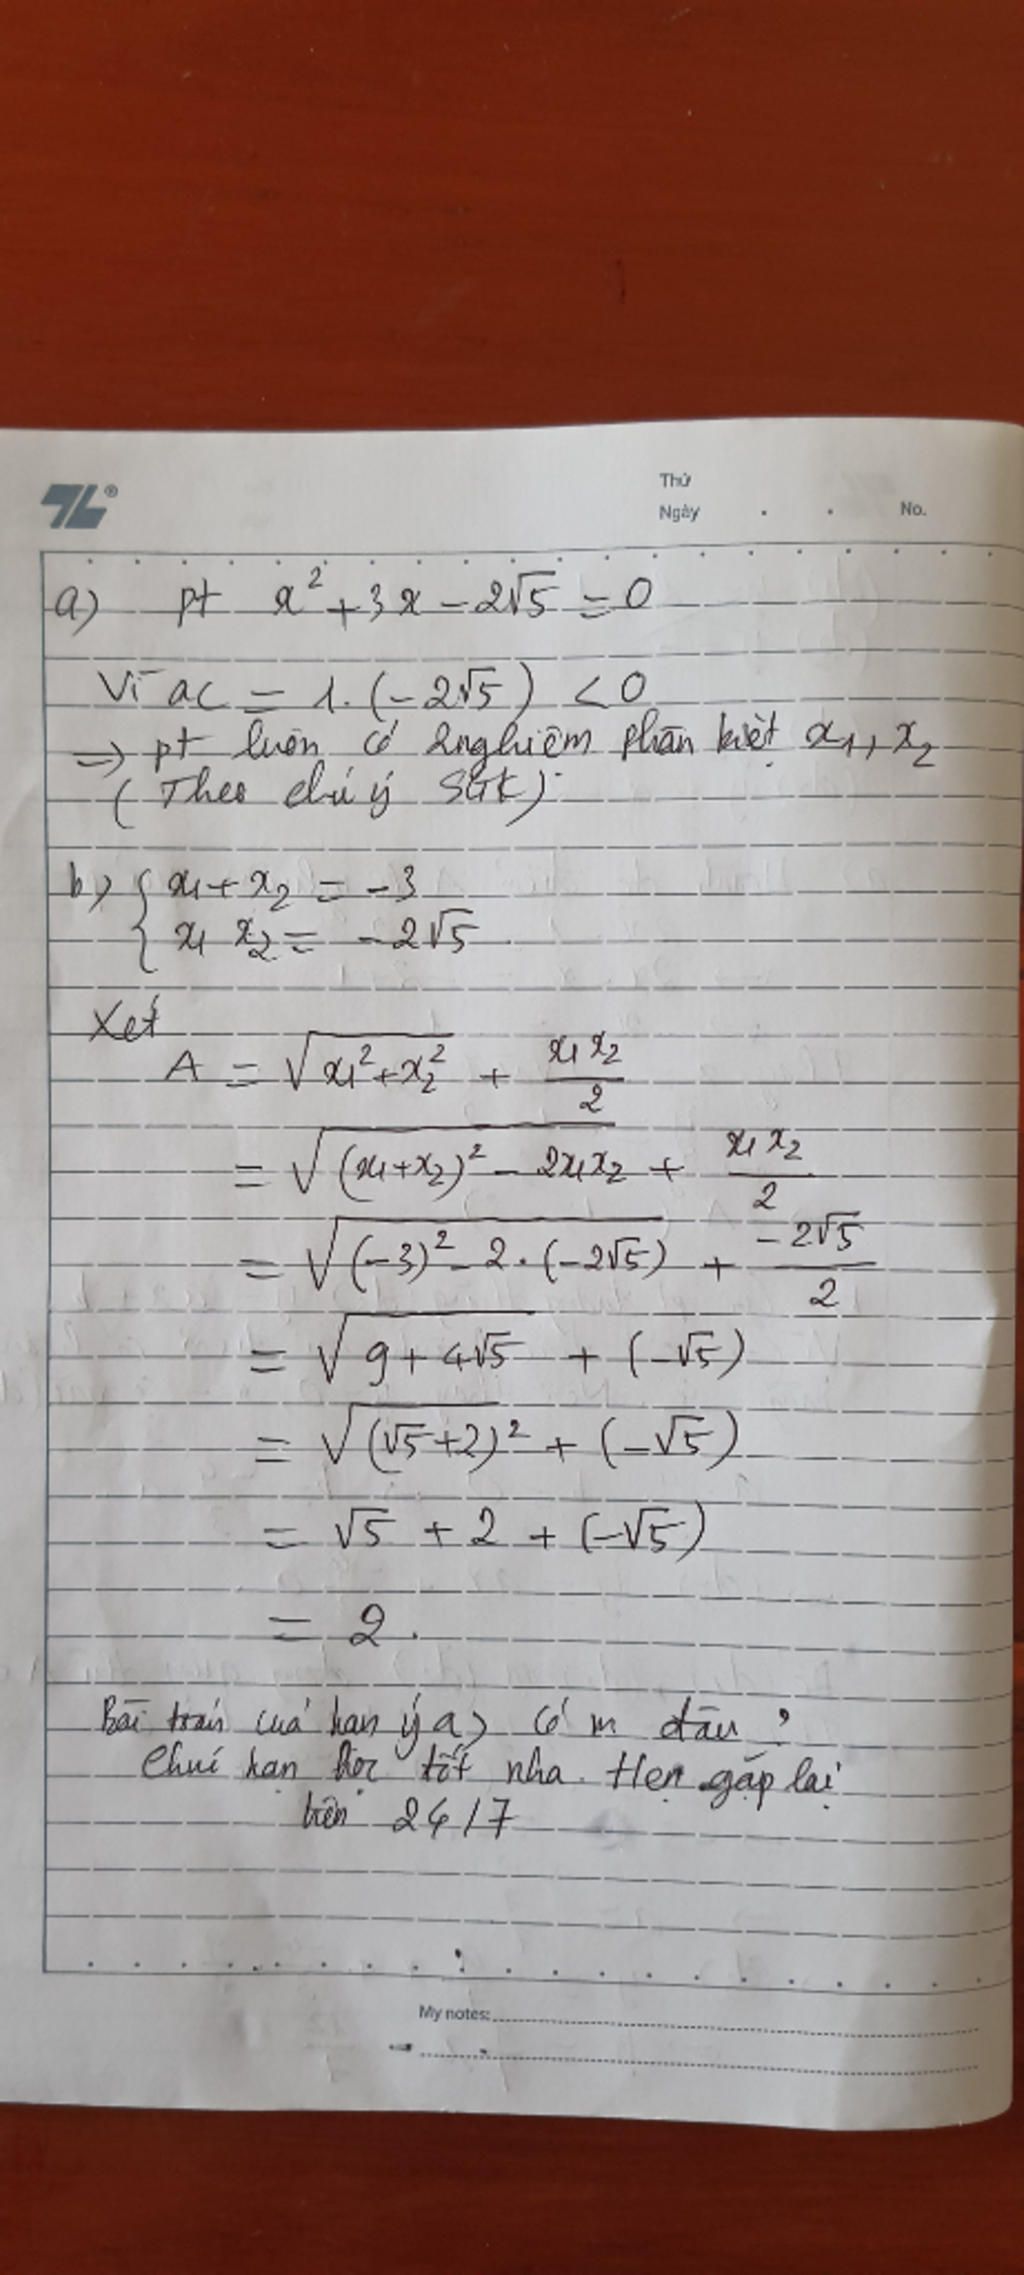 Thứ
Ngày . . No.
a) pt x² + 3x - 2√5 = 0
Vì ac = 1.(-2√5) < 0
=> pt luôn có 2 nghiệm phân biệt x₁, x₂
(Theo chú ý SGK).
b) { x₁ + x₂ = -3
x₁ x₂ = -2√5.
Xét
A = √(x₁² + x₂²) + x₁x₂/2
= √((x₁+x₂)² - 2x₁x₂) + x₁x₂/2
= √((-3)² - 2.(-2√5)) + -2√5/2
= √(9 + 4√5) + (-√5)
= √((√5+2)²) + (-√5)
= √5 + 2 + (-√5)
= 2.
Bài toán của bạn ý a) có m đâu ?
Chúc bạn học tốt nha. Hẹn gặp lại
trên 24/7
My notes: